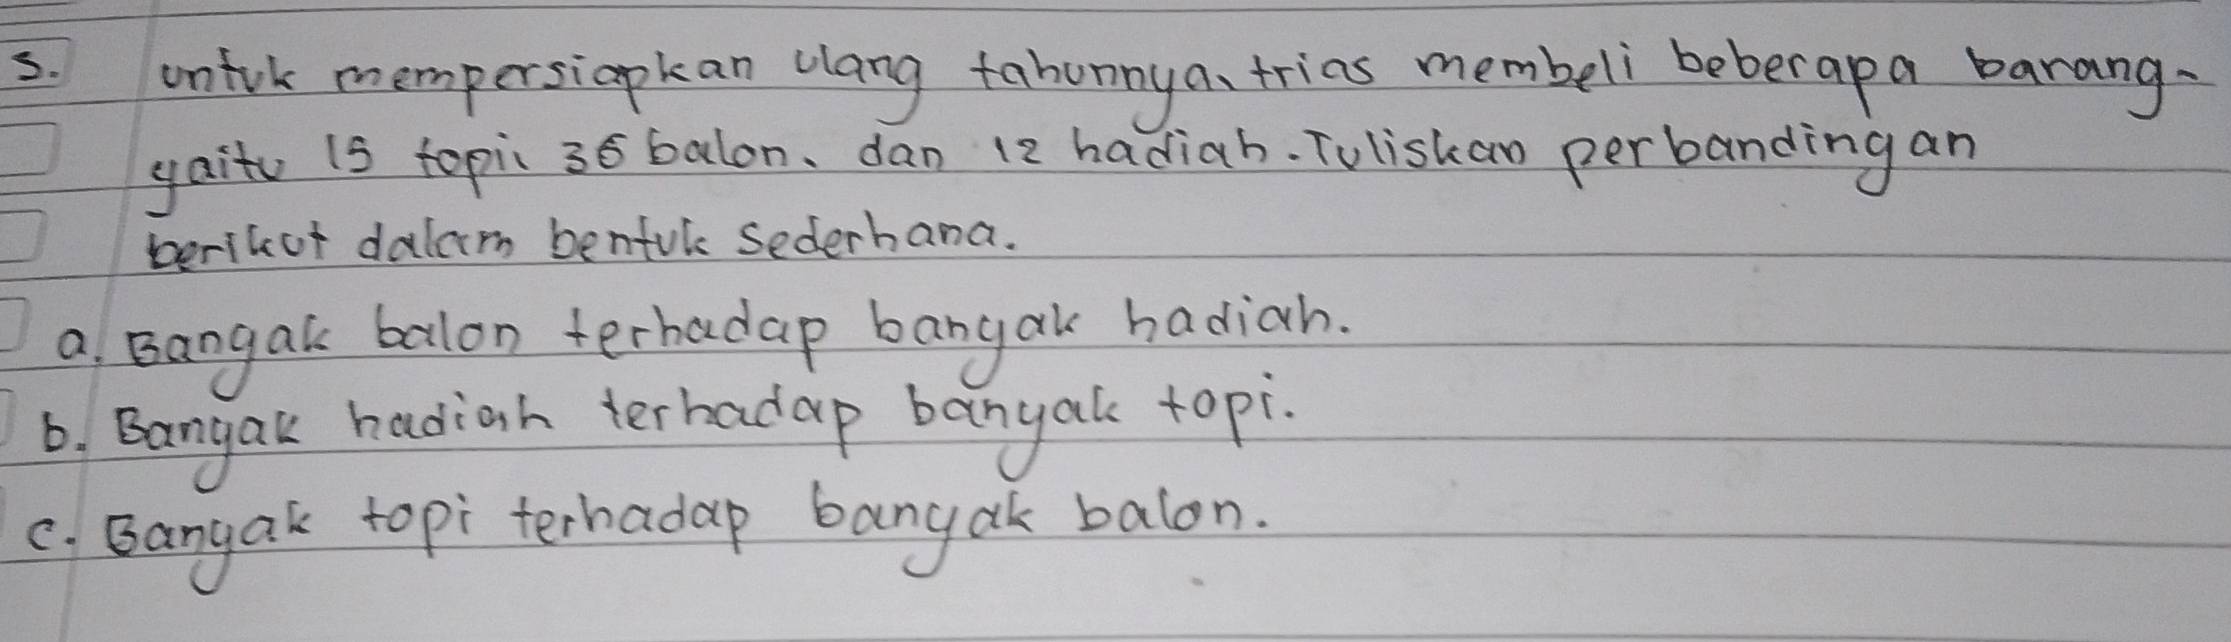 5. untuk mempersiapkan ulang tahunnya, trias membeli beberapa barang-
yaitu 15 topi, 36 balon, dan 12 hadiah. Tuliskan perbandingan
berikut dalam bentuk sederhana.
a. Banyak balon terhadap banyak hadiah.
b. Banyak hadiah terhadap banyak topi.
c. Banyak topi terhadap banyak balon.